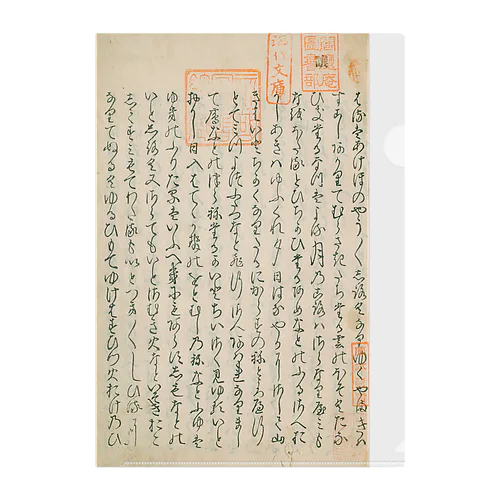 はるはあけほのやう〱しろくなりゆくやまきは
すこしあかりてむらさきたちたる雲のほそくたな
ひきたる夏はよる月のころはさらなりやみも
なをほたるとひちかひたるあめなとのふるさへお
かしあきはゆふくれ夕日はなやかにさして山
きはいとちかくなりたるにからすのねところへゆく
とてみつよつふたつなと
てかりなとのつらねたるかいとちいさくみゆるいと
おかし日入はてゝ風のをとむしのねなと冬は
ゆきのふりたるはいふへきにもあらすしもなとの
いとしろく又さらてもいとさむき火なといそき
すみもてわたるもいとつき〱しひるに
なりてぬるくゆるひもてゆけはすひつ火おけのひ